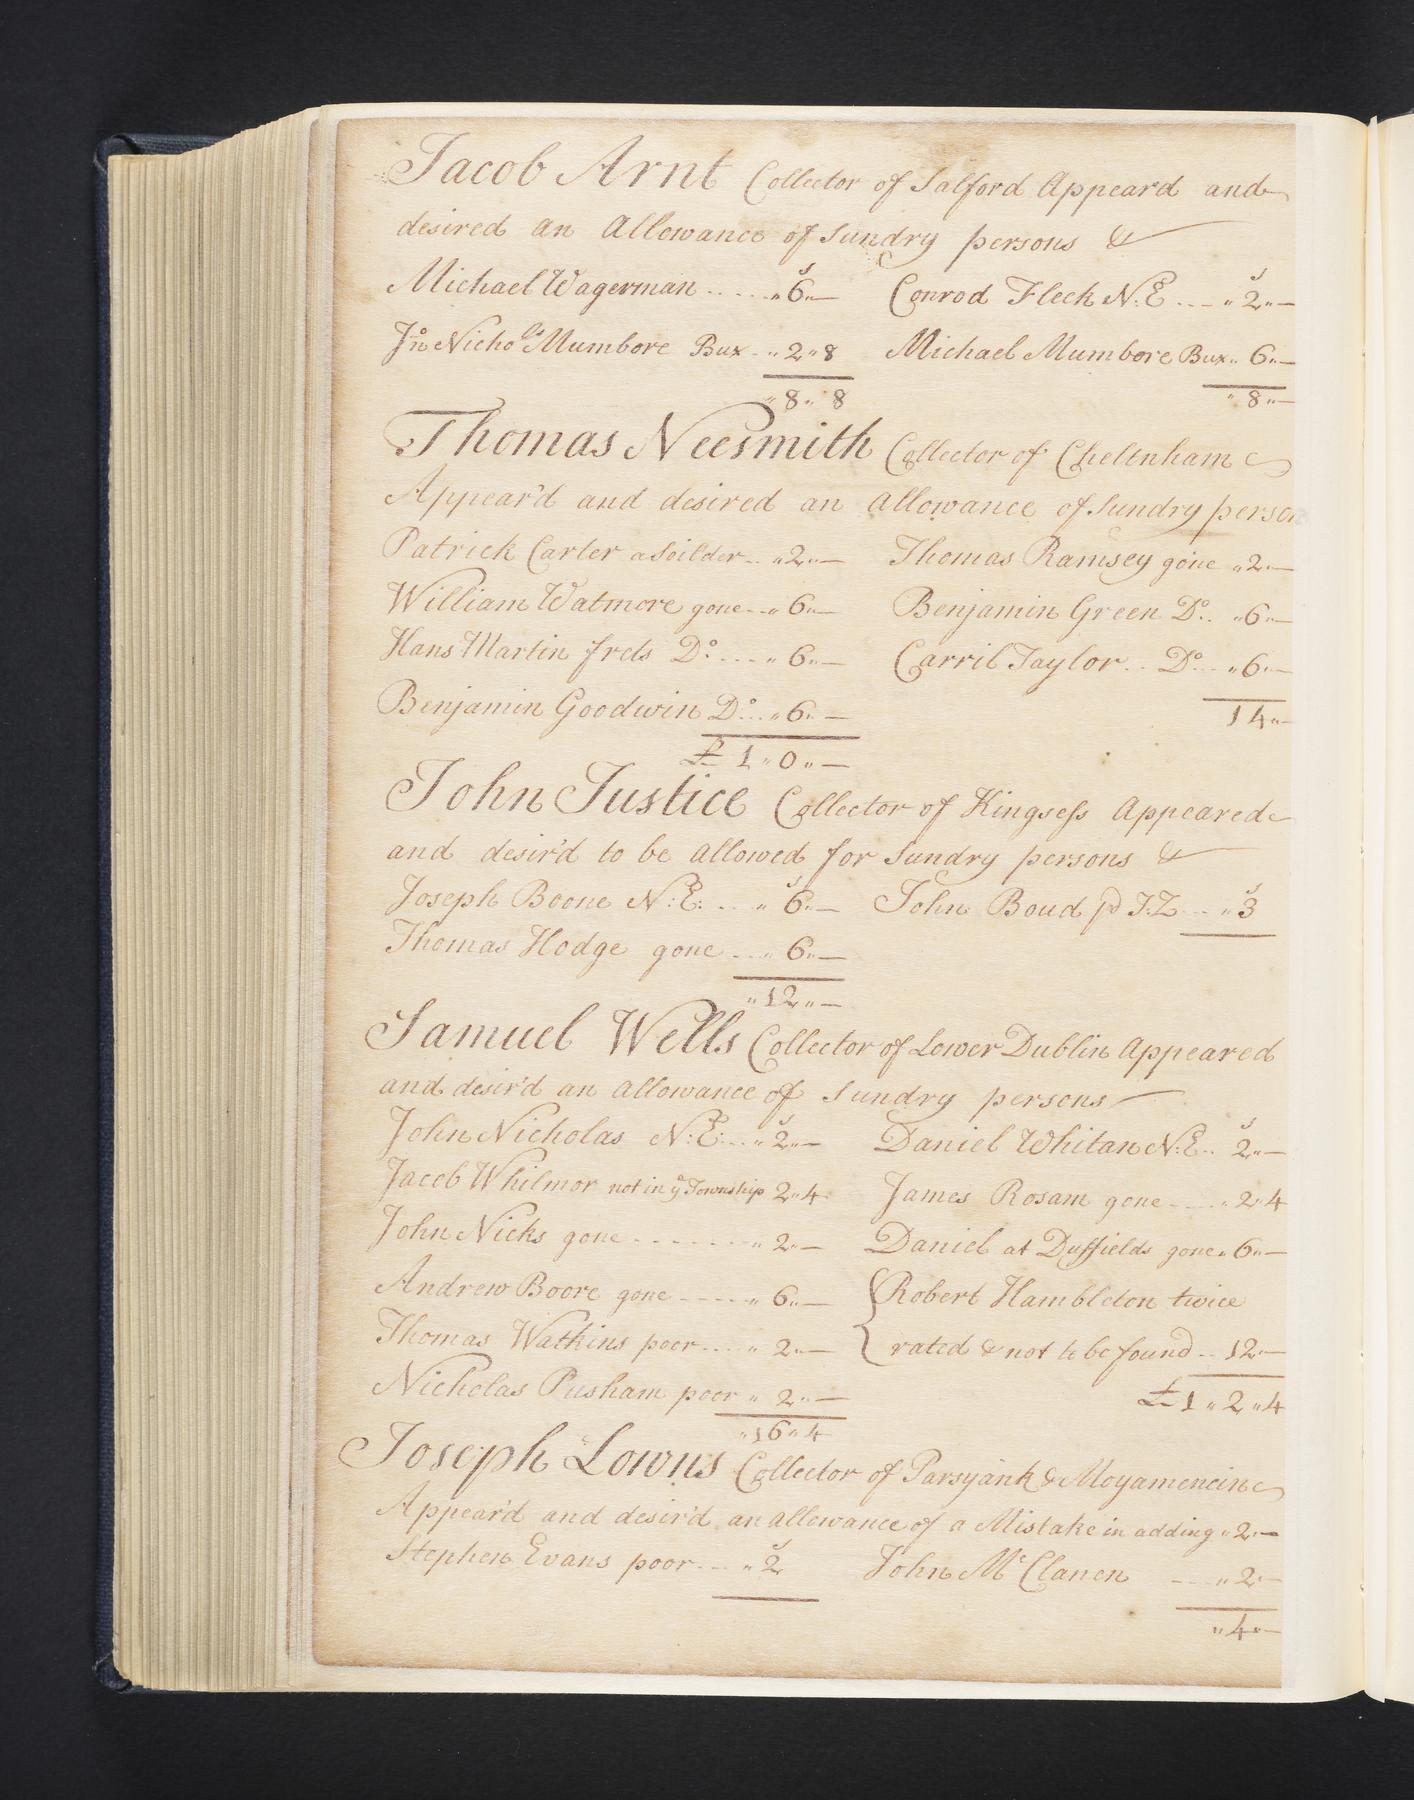 Jacob Arnt Collector of Salford Appeard and
desired an Allowance of Sundry persons &
Michael Wagerman ..... „6„— Conrod Fleck N:E ... „2„—
Jno Nichols Mumbore Bux .. „2„8 Michael Mumbore Bux „6„—
„8„8 „8„—
Thomas Neesmith Collector of Cheltenham
Appear'd and desired an allowance of Sundry person
Patrick Carter a Soilder .. „2„— Thomas Ramsey gone „2„—
William Watmore gone ... „6„— Benjamin Green Do .. „6„—
Hans Martin frets Do .... „6„— Carril Taylor .. Do ... „6„—
Benjamin Goodwin Do ... „6„— 14„—
£1„0„—
John Justice Collector of Kingsess Appeared
and desir'd to be allowed for Sundry persons &
Joseph Boone N:E: ... „6„— John Boud pd I:Z ... „3
Thomas Hodge gone ... „6„—
„12„—
Samuel Wells Collector of Lower Dublin Appeared
and desir'd an allowance of Sundry persons
John Nicholas N:E: ... „2„— Daniel Whitan N:E .. 2„—
Jacob Whilmor not in ye Township 2„4 James Rosam gone ..... „2„4
John Nicks gone ........ „2„— Daniel at Duffields gone „6„—
Andrew Boore gone ..... „6„— Robert Hambleton twice
Thomas Watkins poor .... „2„— rated & not to be found .. 12„—
Nicholas Pusham poor „2„— £1„2„4
„16„4
Joseph Lowns Collector of Parsyank & Moyamencin
Appear'd and desir'd an allowance of a Mistake in adding „2„—
Stephen Evans poor ... „2 John McClanen ... „2„—
„4„—